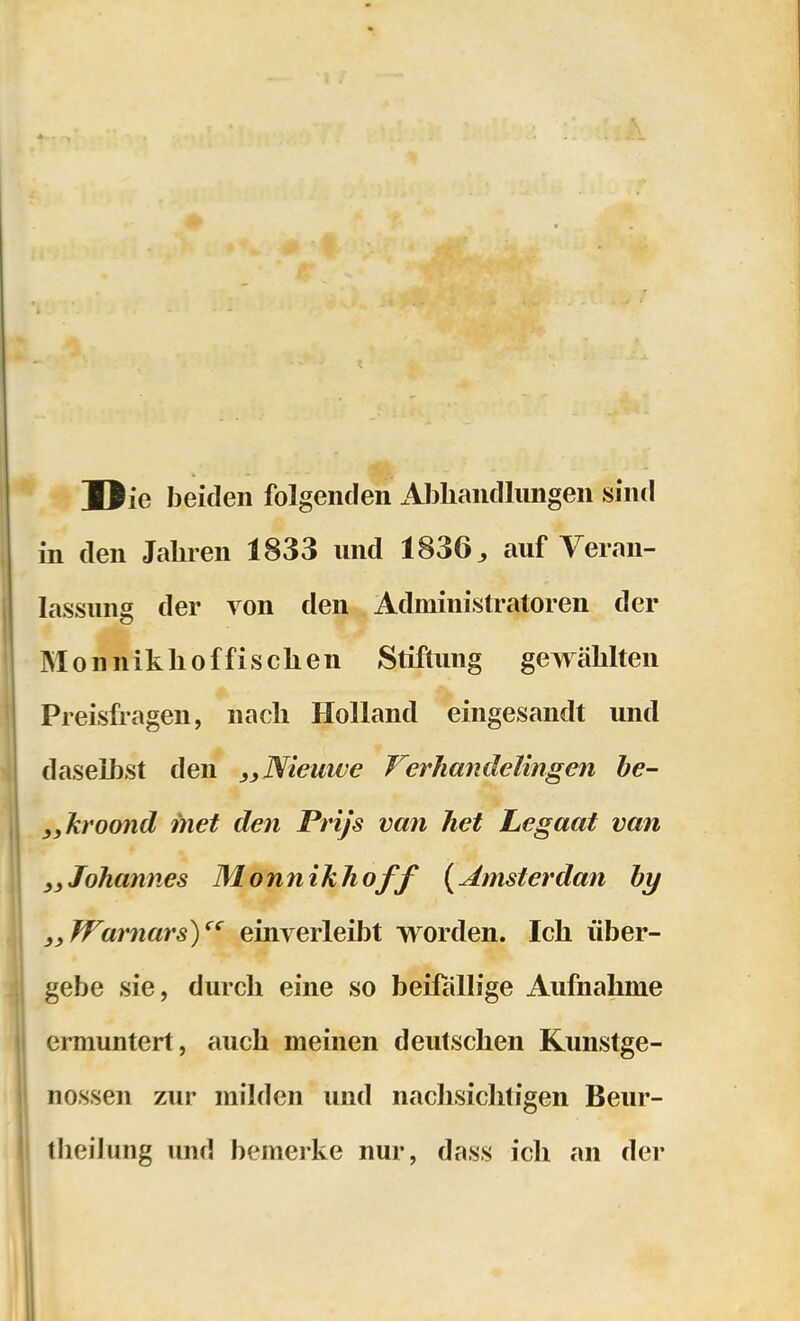 Die beiden folgenden Abhandlungen sind
in den Jahren 1833 und 1836, auf Veran-
lassung der von den Administratoren der
Monnikhoffischen Stiftung gewählten
Preisfragen, nach Holland eingesandt und
daselbst den „Nieuwe Verhandelingen be-
„kroond met den Prijs van het Legaat van
„Johannes Monnikhoff (Amsterdan by
„Warnars)“ einverleibt worden. Ich über-
gebe sie, durch eine so beifällige Aufnahme
ermuntert, auch meinen deutschen Kunstge-
nossen zur milden und nachsichtigen Beur-
theilung und bemerke nur, dass ich an der